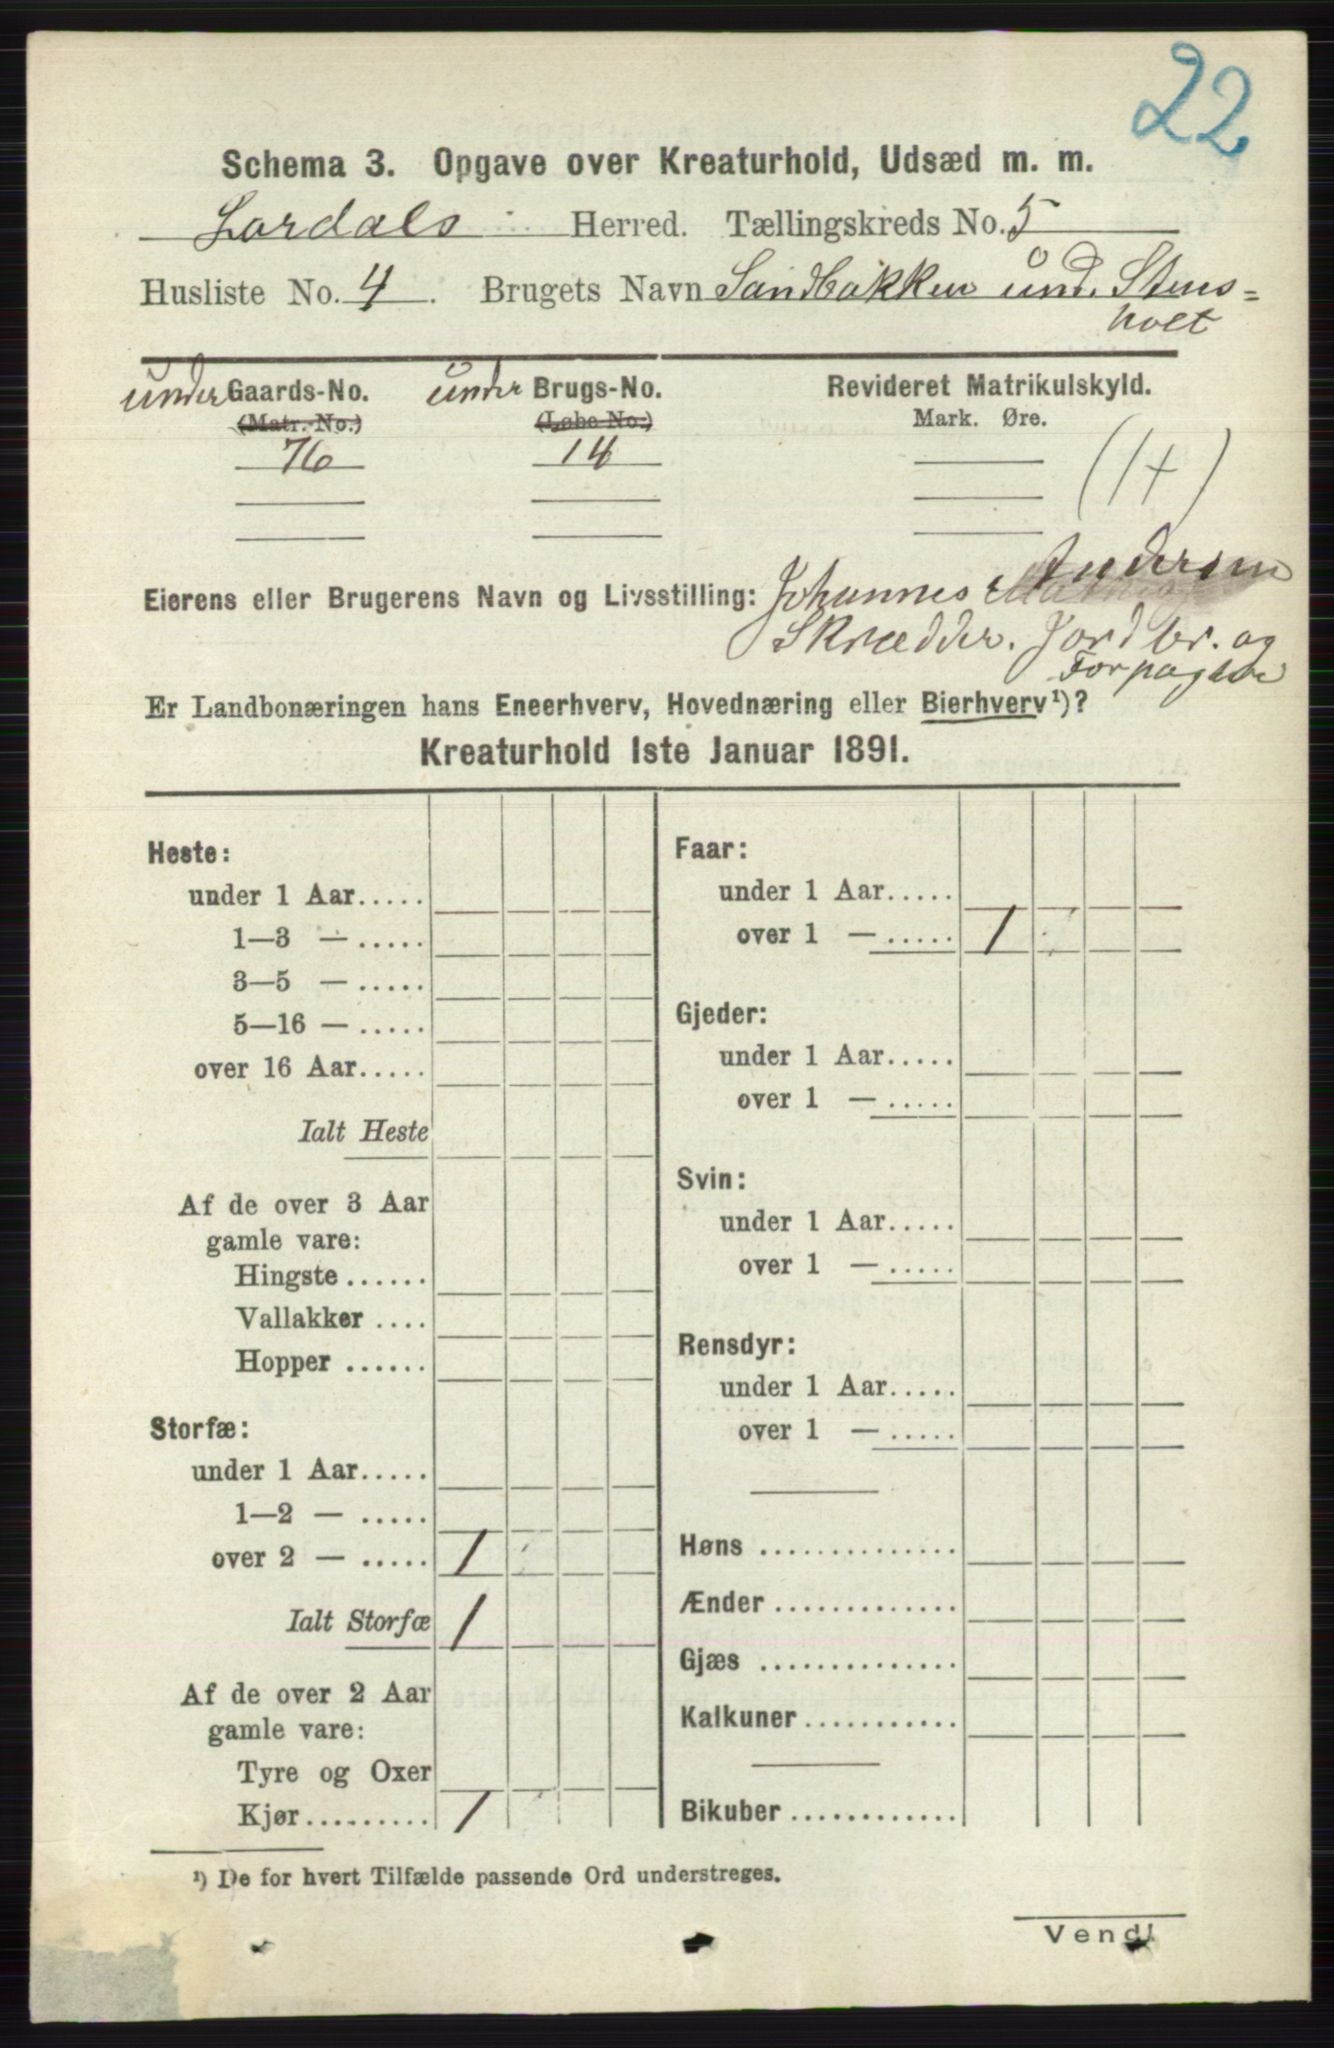 22
Schema 3. Opgave over Kreaturhold, Udsæd m. m.
Lardals Herred. Tællingskreds No. 5
Husliste No. 4. Brugets Navn Sandbakken und. Stens=
holt
under Gaards-No. under Brugs-No. Revideret Matrikulskyld.
(Matr.-No.) (Løbe-No.) Mark. Øre.
76 14
(14)
Andersen
Eierens eller Brugerens Navn og Livsstilling: Johannes
Skrædder. Jordbr. og
Forpagter
Er Landbonæringen hans Eneerhverv, Hovednæring eller Bierhverv¹)?
Kreaturhold 1ste Januar 1891.
Heste:
under 1 Aar.....
1—3 — .....
3—5 — .....
5—16 — .....
over 16 Aar.....
Ialt Heste
Af de over 3 Aar
gamle vare:
Hingste ......
Vallakker ....
Hopper ......
Storfæ:
under 1 Aar.....
1—2 — .....
over 2 — ..... 1
Ialt Storfæ 1
Af de over 2 Aar
gamle vare:
Tyre og Oxer
Kjør......... 1
Faar:
under 1 Aar.....
over 1 — ..... 1
Gjeder:
under 1 Aar.....
over 1 — .....
Svin:
under 1 Aar.....
over 1 — .....
Rensdyr:
under 1 Aar.....
over 1 — .....
Høns ..............
Ænder .............
Gjæs ..............
Kalkuner...........
Bikuber ............
¹) De for hvert Tilfælde passende Ord understreges.
Vend!